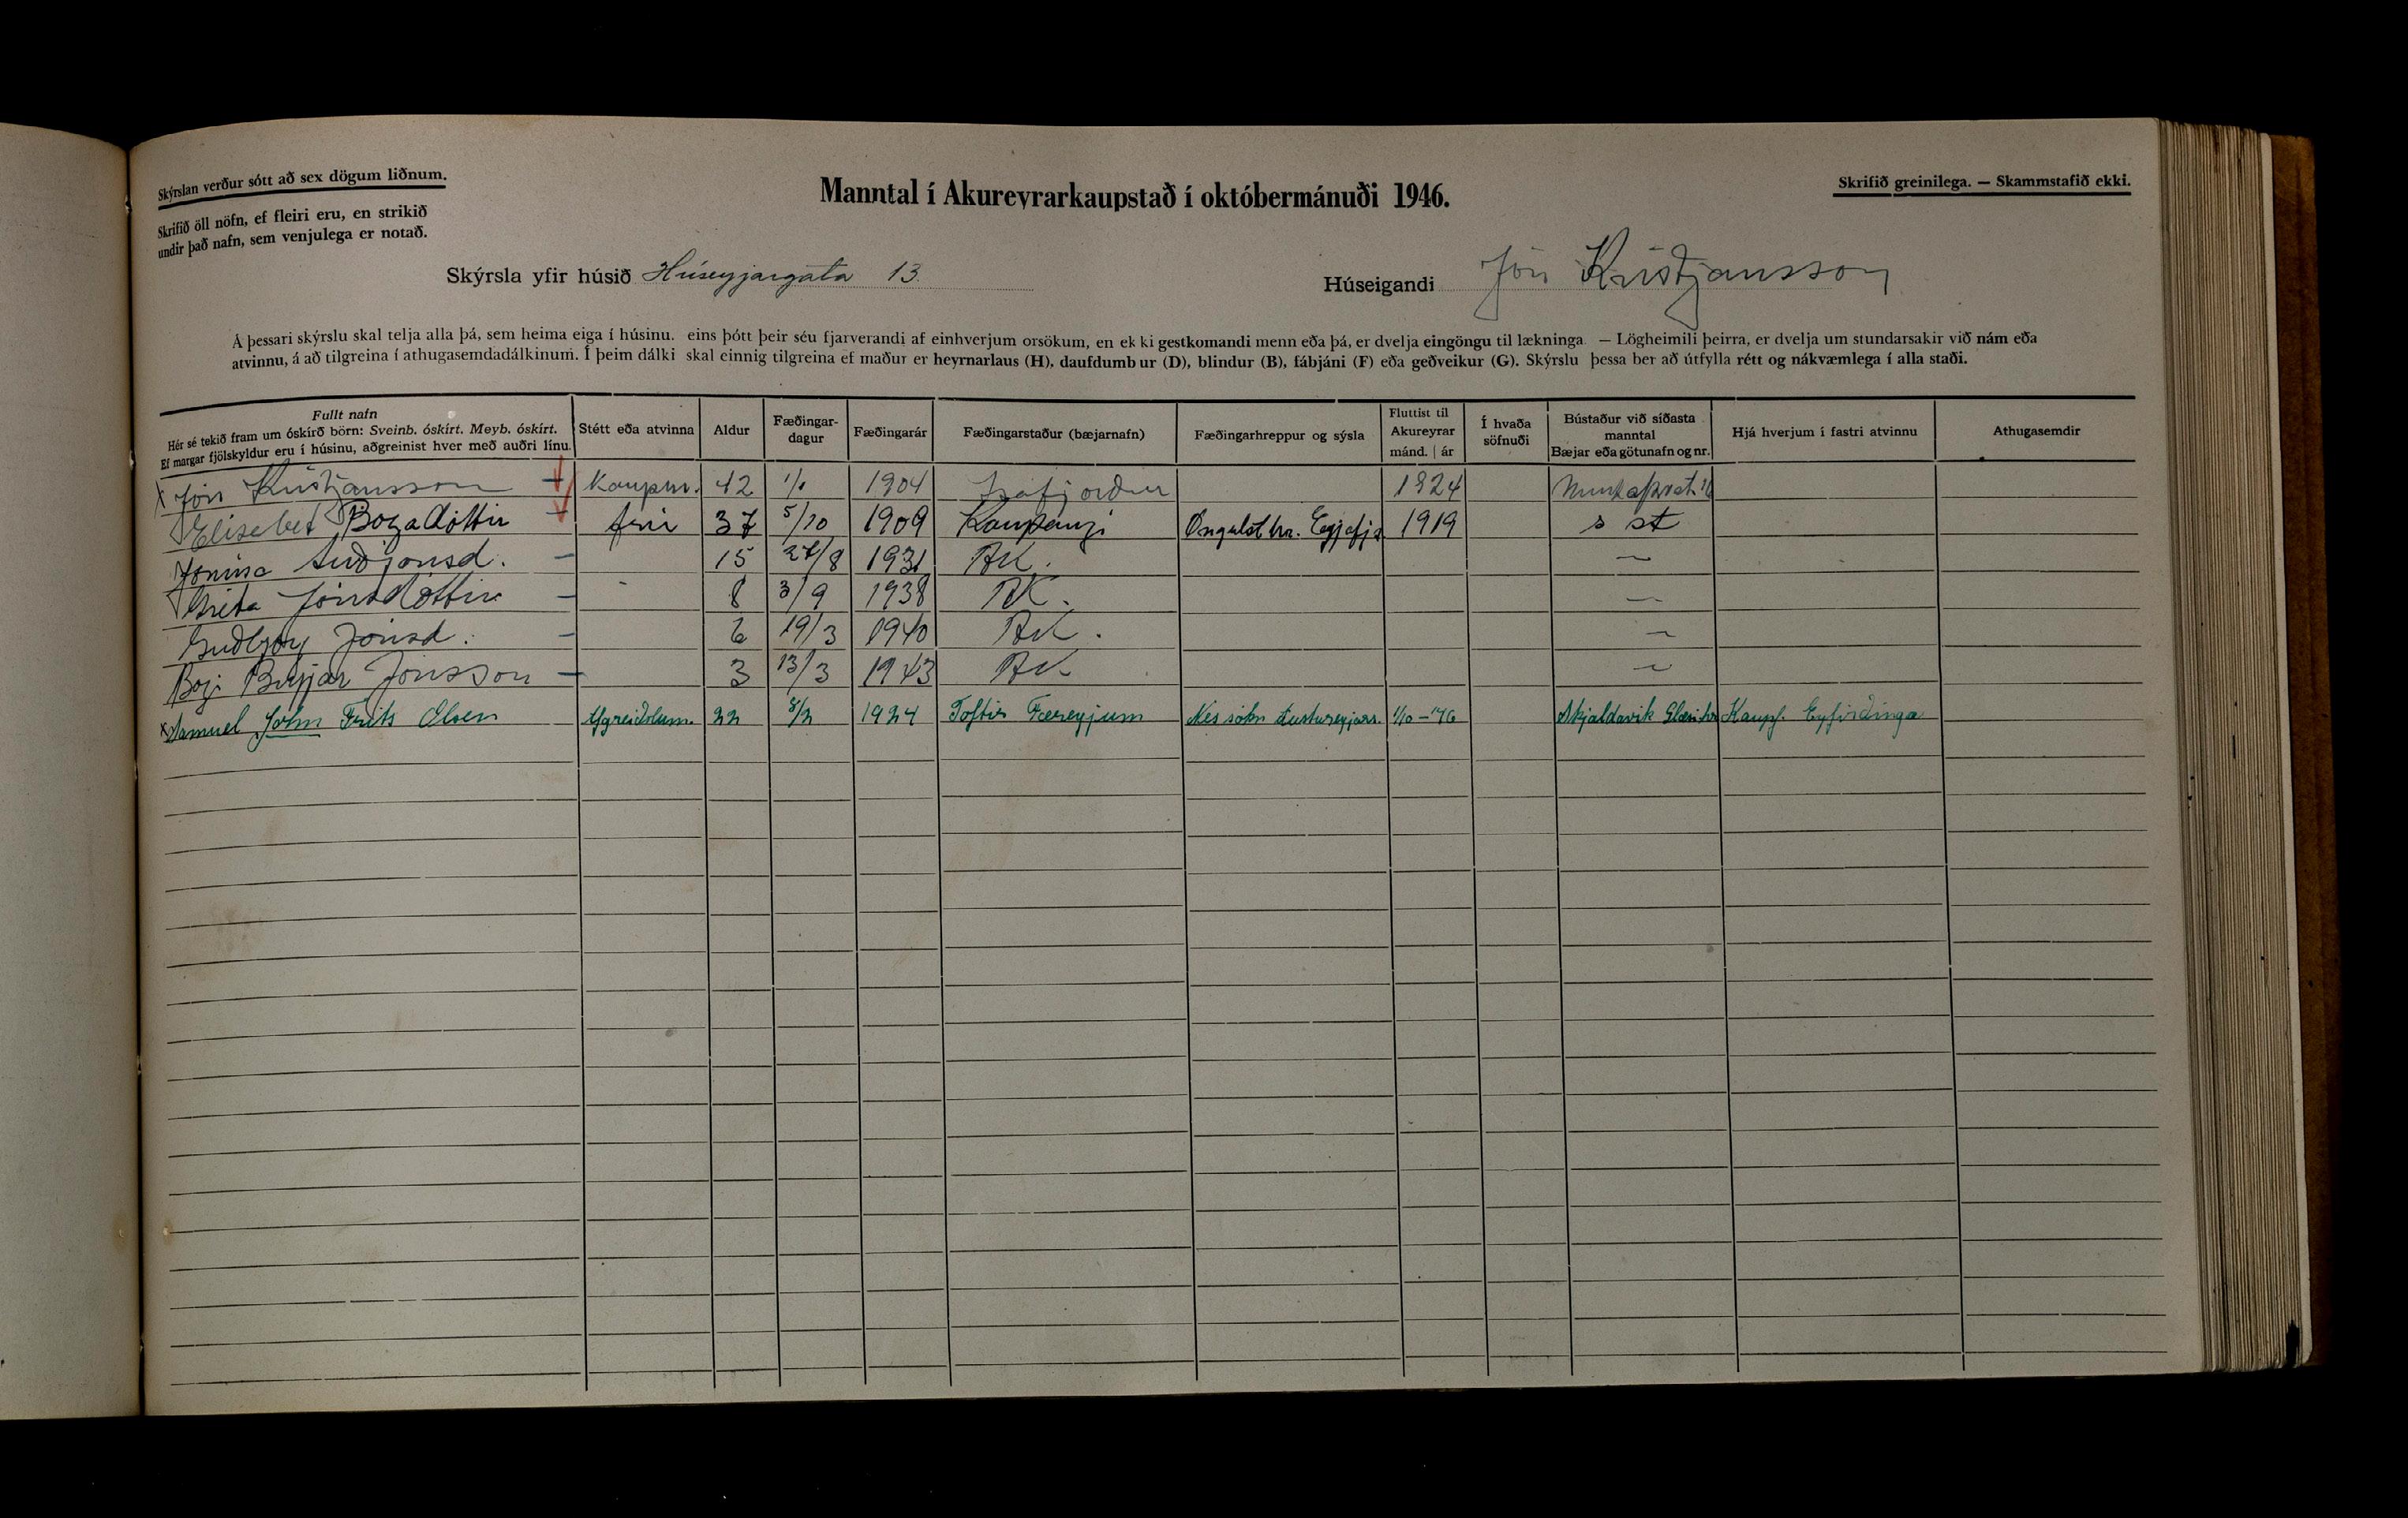 Skýrslan verður sótt að sex dögum liðnum.
Skrifið öll nöfn, ef fleiri eru, en strikið
undir það nafn, sem venjulega er notað.
Manntal í Akureyrarkaupstað í októbermánuði 1946.
Skrifið greinilega. — Skammstafið ekki.
Skýrsla yfir húsið Húseyjargata 13.
Húseigandi Jón Kristjansson
Á þessari skýrslu skal telja alla þá, sem heima eiga í húsinu. eins þótt þeir séu fjarverandi af einhverjum orsökum, en ek ki gestkomandi menn eða þá, er dvelja eingöngu til lækninga — Lögheimili þeirra, er dvelja um stundarsakir við nám eða
atvinnu, á að tilgreina í athugasemdadálkinum. Í þeim dálki skal einnig tilgreina ef maður er heyrnarlaus (H), daufdumb ur (D), blindur (B), fábjáni (F) eða geðveikur (G). Skýrslu þessa ber að útfylla rétt og nákvæmlega í alla staði.
Fullt nafn
Hér sé tekið fram um óskírð börn: Sveinb. óskírt. Meyb. óskírt.
Ef margar fjölskyldur eru í húsinu, aðgreinist hver með auðri línu.
Stétt eða atvinna
Aldur
Fæðingar-
dagur
Fæðingarár
Fæðingarstaður (bæjarnafn)
Fæðingarhreppur og sýsla
Fluttist til
Akureyrar
mánd. | ár
Í hvaða
söfnuði
Bústaður við síðasta
manntal
Bæjar eða götunafn og nr.
Hjá hverjum í fastri atvinnu
Athugasemdir
Jón Kristjansson Kaupm. 42 1904 Isafjordur 1924
Elisebet Bogadóttir frú 37 5/10 1909 Kaupangi Ongulst hr. Eyjafjs 1919 s st
Jonina 15 27/8 1931 AK. —
Greta Jónsdóttir 8 3/9 1938 AK. —
Gudbjörg Jónsd. 6 19/3 1940 AK. —
Bogi Jónsson 3 13/3 1943 AK —
Samuel John Frits Olsen Afgreidslum. 22 8/2 1924 Toftir Færeyjum Nes sókn Austureyjars. 1/10-'46 Skjaldavik Glæsihr Kaupf. Eyfirðinga